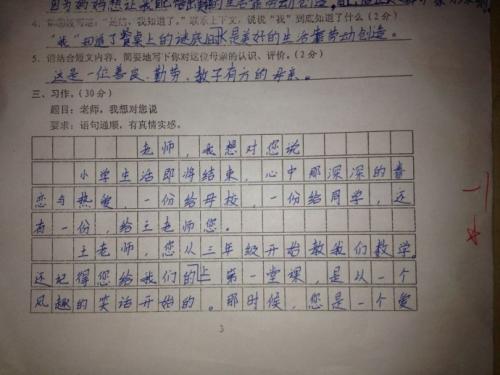 因为妈妈想让我
4. 你知道 “是的，我知道了。”联系上下文，说说“我”到底知道了什么（2分）
“我”知道了餐桌上的谜底 是美好的生活靠劳动创造。
5. 请结合短文内容，简要地写下你对这位母亲的认识、评价。（2分）
这是一位善良、勤劳、教子有方的母亲。
三、习作。（30分）
题目：老师，我想对您说
要求：语句通顺，有真情实感。
老师，我想对您说
小学生活即将结束，心中那深深的眷
恋与热爱，一份给母校，一份给同学，还
有一份，给王老师您。
王老师，您从三年级开始教我们数学。
还记得您给我们的上第一堂课，是以一个
风趣的笑话开始的。那时候，您是一个爱
3